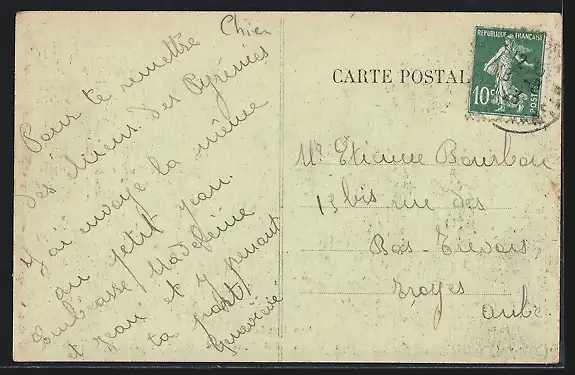 Chien
Pour te remettre
des chiens des Pyrénées
J'ai envoyé la même
au petit Jean.
Embrasse Madeleine
et Jean et y prenant
ta part.
Geneviève
CARTE POSTAL
REPUBLIQUE FRANÇAISE
10c
POSTES
Mr Etienne Bourbon
13 bis rue des
Bas-Trévois
Troyes
Aube